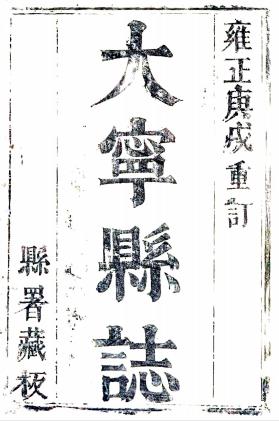 雍正庚戌重訂
大寧縣誌
縣署藏板